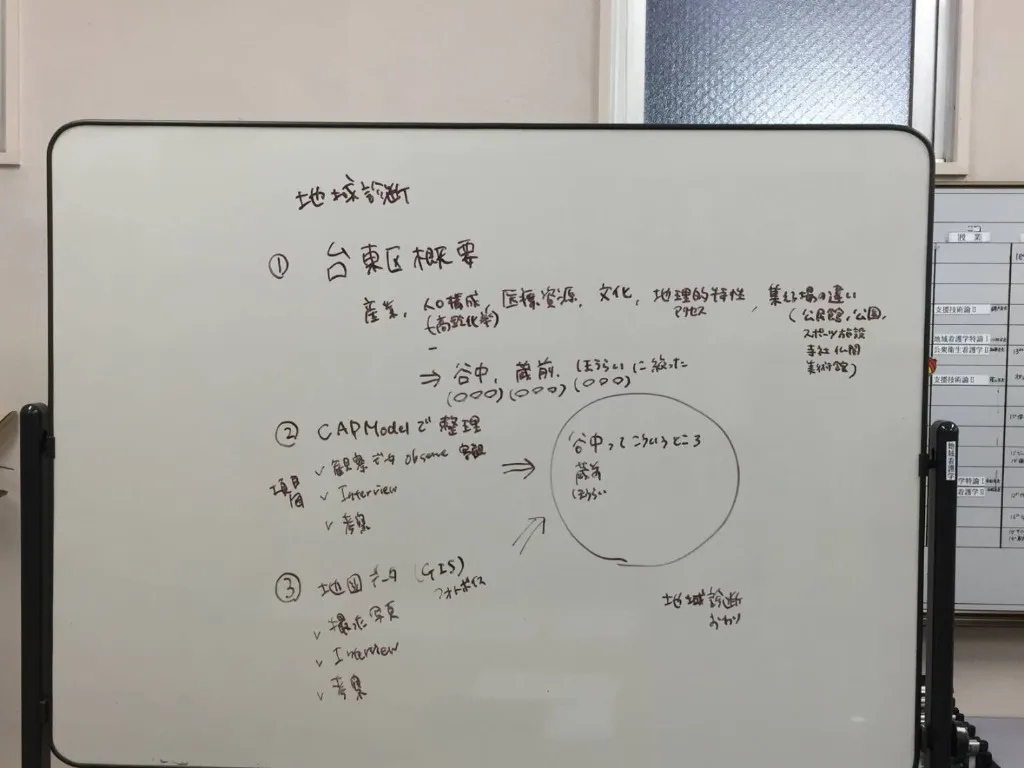 地域診断
① 台東区概要
産業, 人口構成, 医療資源, 文化, 地理的特性, 集まる場の違い
(高齢化率)
アクセス
(公民館, 公園,
スポーツ施設
寺社仏閣
美術館)
⇒ 谷中, 蔵前, ほうらいに絞った
(○○○) (○○○) (○○○)
② CAPModelで整理
項目
✓ 観察データ observe
✓ Interview
✓ 考察
⇒
谷中ってこういうところ
蔵前
ほうらい
③ 地図データ (GIS)
フォトボイス
✓ 撮影写真
✓ Interview
✓ 考察
地域診断
おわり
授業
支援技術論Ⅱ
地域看護学特論Ⅰ
公衆衛生看護学Ⅱ
支援技術論Ⅱ
学特論Ⅰ
看護学Ⅱ
地域看護学